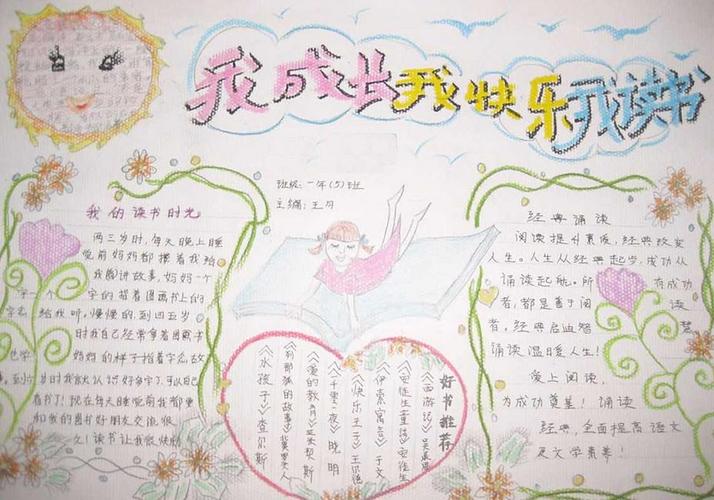 我成长我快乐我读书
班级：一年(5)班
主编：王月
我的读书时光
两三岁时，每天晚上睡
觉前妈妈都搂着我给
我脚讲故事，妈妈一个
字一个字的指着图画书上的
给我听，慢慢的，到四五岁
时我自己经常拿着图画书
妈妈的样子指着字念故
岁时我就认识好多字了，可以自己
看书了！现在每天睡觉前我都要
和我的图书好朋友交流很
久！读书让我很快乐
好书推荐
《西游记》吴承恩
《安徒生童话》安徒生
《伊索寓言》于文
《快乐王子》王尔德
《一千里一夜》晓明
《爱的教育》
《列那狐的故事》
《水孩子》查尔斯
经典诵读
阅读提升素质，经典改变
人生。人生从经典起步，成功从
诵读起航。所有成功
者，都是善于阅读
者，经典启迪智慧
诵读温暖人生！
爱上阅读，
为成功奠基！诵读
经典，全面提高语文
及文学素养！